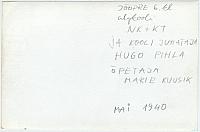 JÕÕPRE 6. kl
algkooli
NK + KT
JA KOOLI JUHATAJA
HUGO PIHLA
ÕPETAJA
MARIE KUUSIK
MAI 1940